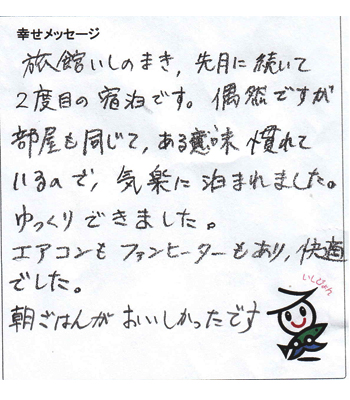 幸せメッセージ
旅館いしのまき，先月に続いて
2度目の宿泊です。偶然ですが
部屋も同じで，ある意味慣れて
いるので，気楽に泊まれました。
ゆっくりできました。
エアコンもファンヒーターもあり，快適
でした。
いしぴょん
朝ごはんがおいしかったです